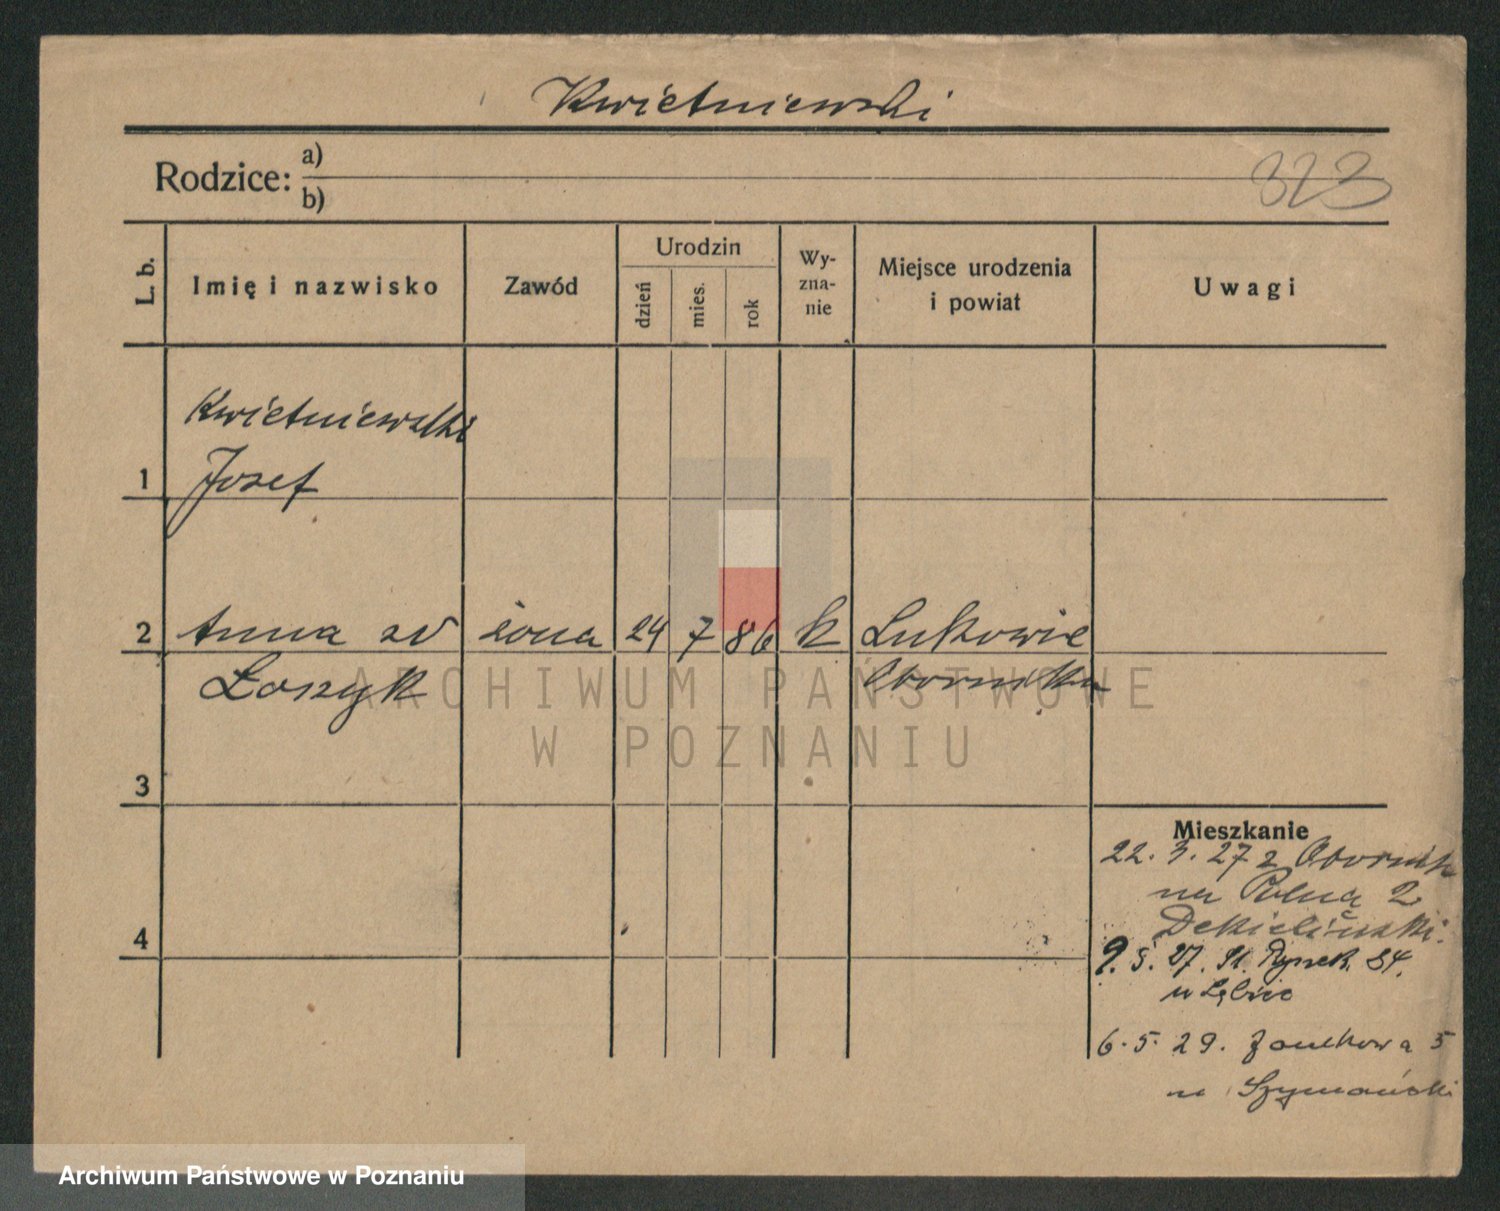 Kwietniewski
Rodzice: a)
b)
323
L. b.
Imię i nazwisko
Zawód
Urodzin
dzień
mies.
rok
Wy-
zna-
nie
Miejsce urodzenia
i powiat
Uwagi
Kwietniewski
1 Josef
2 Anna żona 24 7 86 k Lukowie
Lozyk
3
Mieszkanie
22. 3. 27 z
na Polną 2
4
9. 5. 27. St. Rynek. 84.
6. 5. 29. Zamkowa 5
Szymański
ARCHIWUM PAŃSTWOWE
W POZNANIU
Archiwum Państwowe w Poznaniu